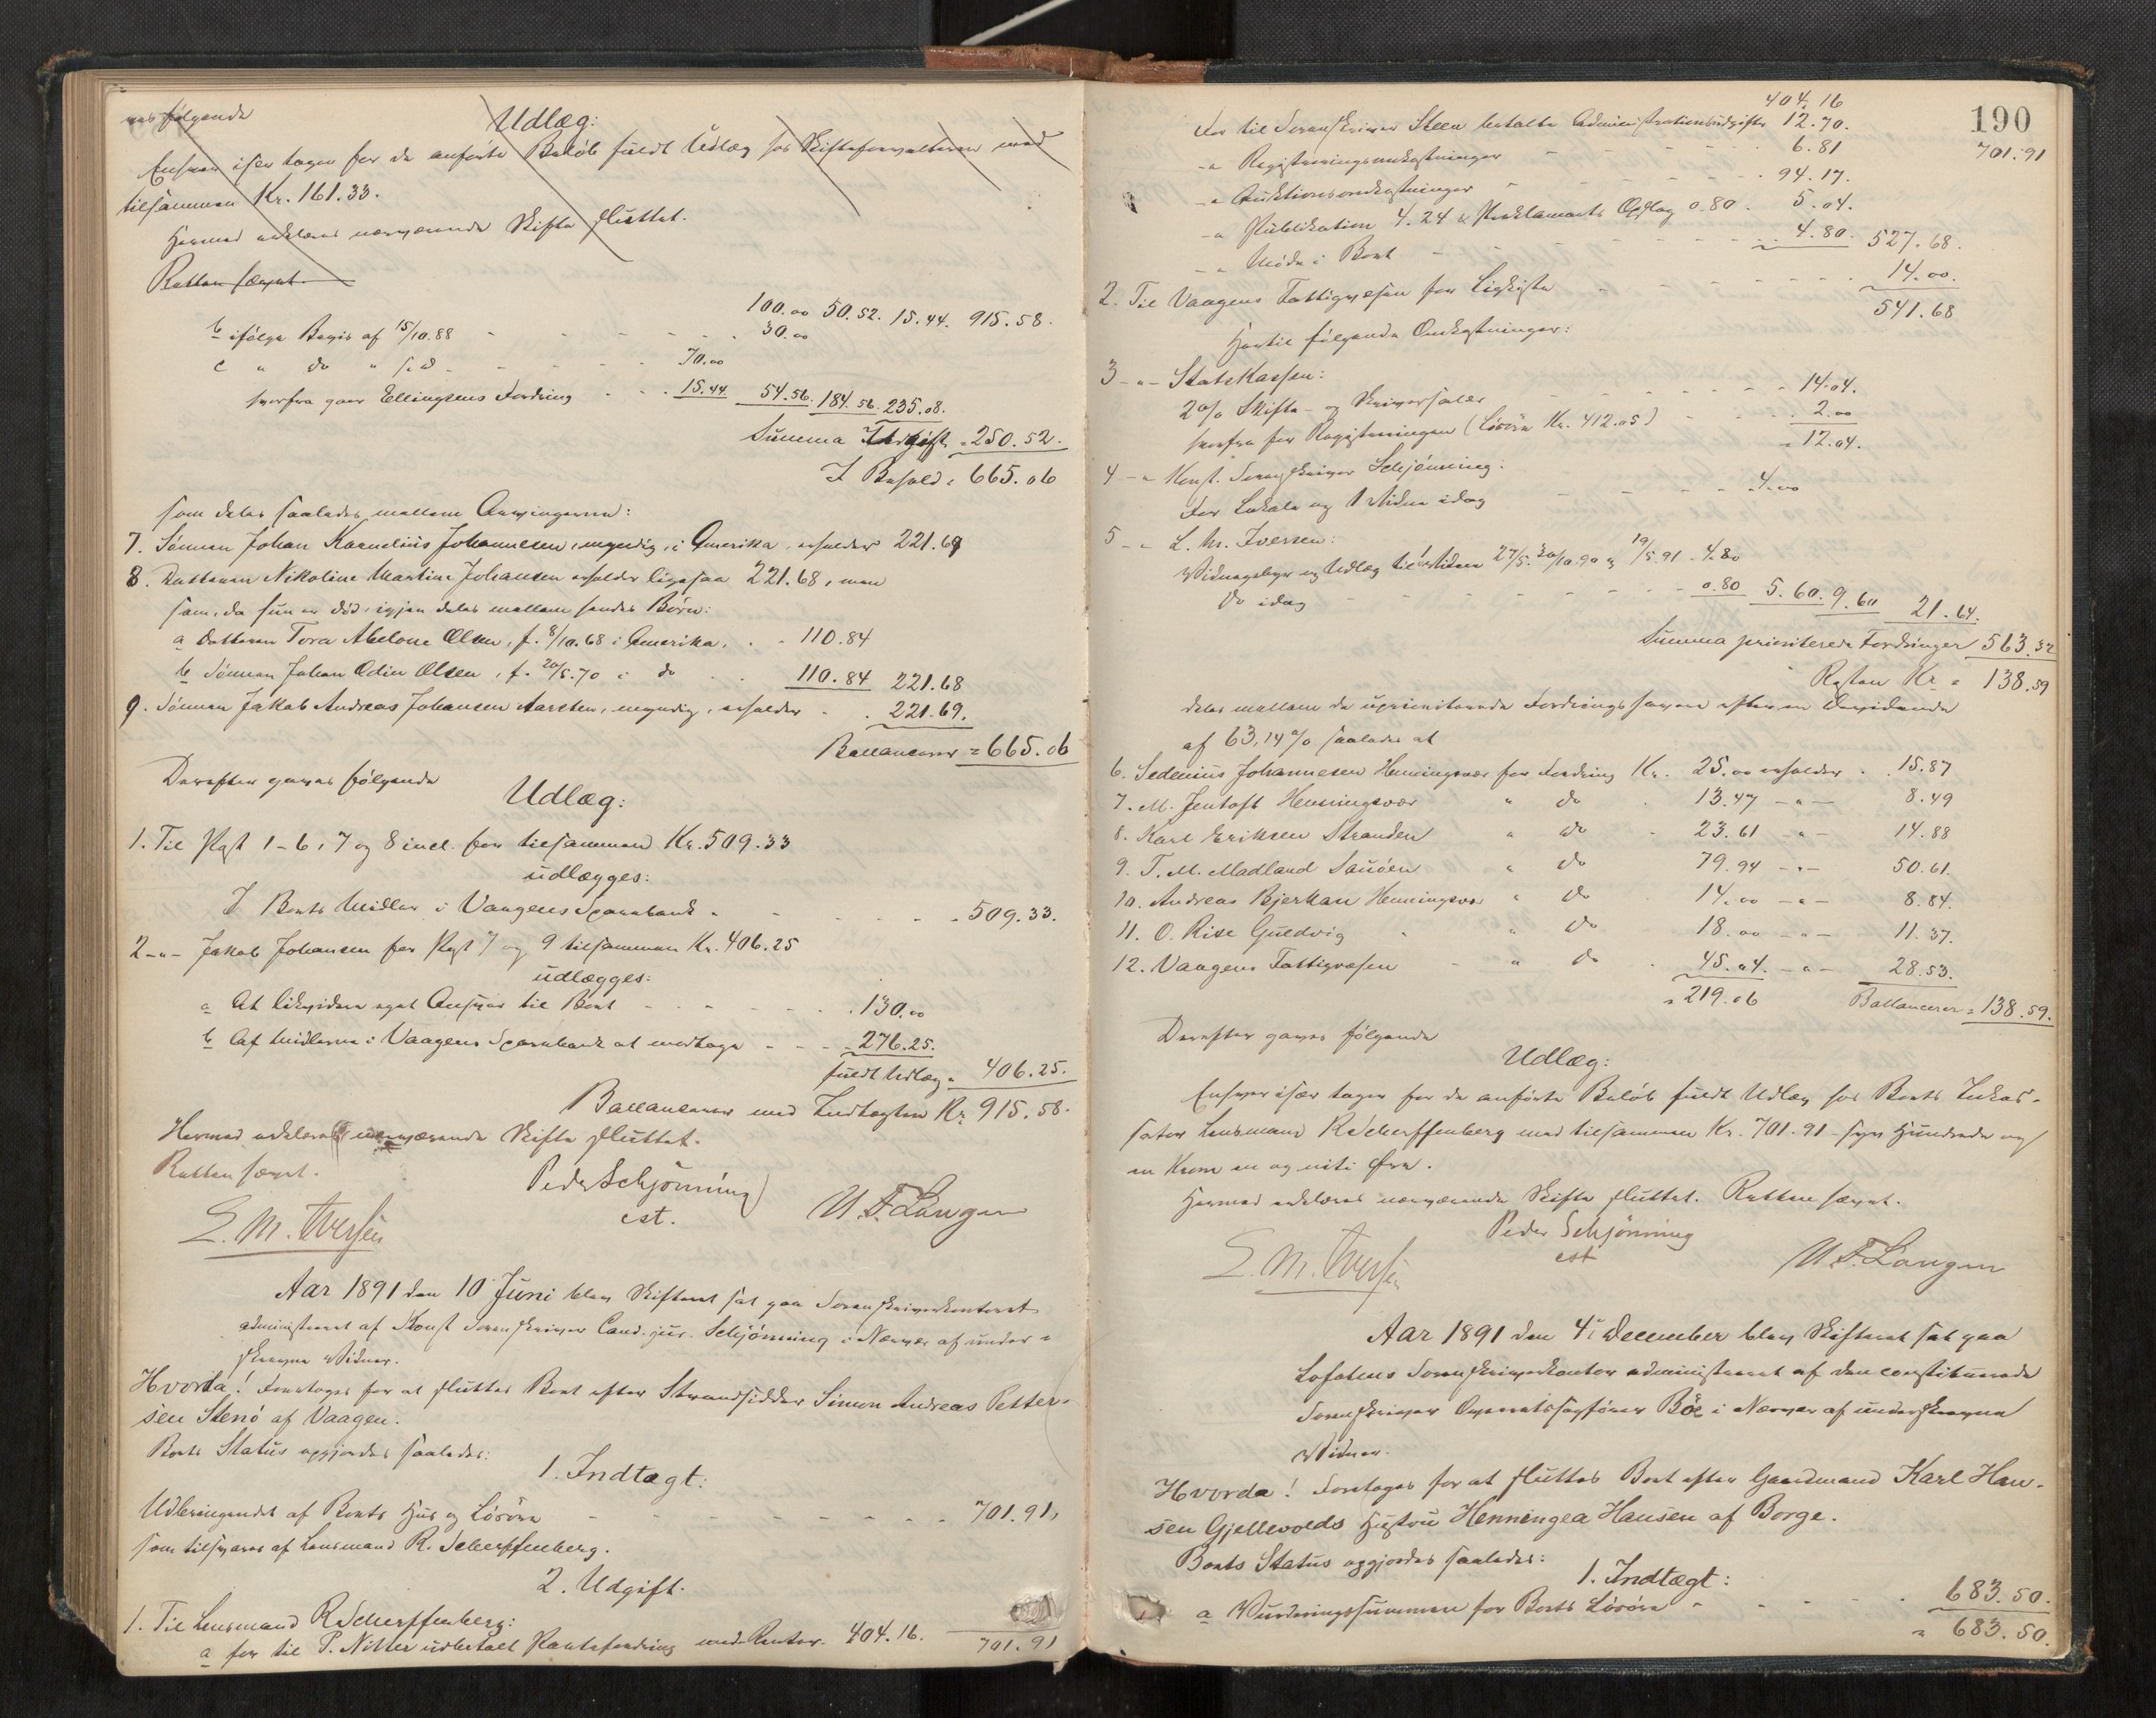 ves følgende
Udlæg:
Enhver især tager for de anførte Beløb fuldt Udlæg hos Skifteforvalteren med
tilsammen Kr. 161.33.
Hermed erklæres nærværende Skifte sluttet.
Retten hævet.
100.00 50.52. 15.44. 915.58.
b ifølge Bevis af 15/10.88 - - - - - 30.00
c " do " s.d. - - - - 70.00
hvorfra gaar Ellingsens Fordring . . . 15.44 54.56. 184.56. 235.08.
Summa Udgift = 250.52.
I Behold = 665.06
som deles saaledes mellem Arvingerne:
7. Sønnen Johan Kornelius Johannesen, myndig, i Amerika, erholder 221.69
8. Datteren Nikoline Martine Johansen erholder ligesaa 221.68, men
som, da hun er død, igjen deles mellem hendes Børn:
a Datteren Tora Abelone Olsen, f. 8/10.68 i Amerika. . . 110.84
b Sønnen Johan Odin Olsen, f. 20/5.70 i do . . 110.84 221.68
9. Sønnen Jakob Andreas Johansen Aarsten, myndig, erholder . . 221.69.
Ballancerer = 665.06
Derefter gaves følgende
Udlæg:
1. Til Pgt 1-6, 7 og 8 incl. for tilsammen Kr. 509.33
udlægges:
I Boets Midler i Vaagens Sparebank - - - - - 509.33.
2 -"- Jakob Johansen for Pgt 7 og 9 tilsammen Kr. 406.25
udlægges:
a At likvidere eget Ansvar til Boet - - - - 130.00
b Af Midlerne i Vaagens Sparebank at modtage - - - 276.25.
fuldt Udlæg = 406.25.
Ballancerer med Indtægten Kr. 915.58.
Hermed erklæres nærværende Skifte sluttet.
Retten hævet.
Peder Schjønning
cst.
L. M. Iversen
U. F. Langen
Aar 1891 den 10 Juni blev Skifteret sat paa Sorenskriverkontoret
administreret af Konst. Sorenskriver Cand. jur. Schjønning i Nærvær af under-
skrevne Vidner.
Hvorda! Foretoges for at sluttes Boet efter Strandsidder Simon Andreas Petter-
sen Stenø af Vaagen.
Boets Status opgjordes saaledes:
1. Indtægt:
Udbringendet af Boets Hus og Løsøre - - - - - - 701.91,
som tilsvares af Lensmand R. Scherffenberg.
2. Udgift.
1. Til Lensmand R Scherffenberg:
a for til P. Nitter udbetalt Pantefordring med Renter. 404.16. 701.91
190
404.16 701.91
For til Sorenskriver Steen betalte Administrationsudgifter 12.70.
-" Registreringsomkostninger - - - - - 6.81
-" Auktionsomkostninger - - - - - 94.17.
-" Publikation 4.24 & Proklamaets Opslag 0.80. 5.04.
-" Møde i Boet - - - - - 4.80. 527.68.
2. Til Vaagens Fattigvæsen for Ligkiste - - - - - 14.00.
541.68
Hertil følgende Omkostninger:
3 -"- Statskassen:
2% Skifte- og Skriversalær - - - - - 14.04.
hvorfra for Registreringen (Løsøre Kr. 412.05) - - 2.00
= 12.04.
4 -" Konst. Sorenskriver Schjønning:
For Lokale og 1 Vidne idag - - - - 4.00
5 -" L. M. Iversen:
Vidnegebyr og Udlæg til 1 Vidne 27/5. 30/10.90 & 19/5.91. 4.80
do idag - - - - - 0.80 5.60. 9.60 21.64.
Summa prioriterede Fordringer 563.32
Resten Kr. = 138.59
deles mellem de uprioriterede Fordringshavere efter en Dividende
af 63,14% saaledes at
6. Sedenius Johannesen Henningsvær for Fordring Kr. 25.00 erholder . . 15.87
7. M. Jentoft Henningsvær " do . 13.47 -"- 8.49
8. Karl Eriksen Stranden " do - 23.61 -"- 14.88
9. T. M. Madland Sauøen " do 79.94 -"- 50.61.
10. Andreas Bjerkan Henningsvær " do 14.00 -"- 8.84.
11. O. Rise Guldvig " do 18.00 -"- 11.37.
12. Vaagens Fattigvæsen - " do . 45.04. -"- 28.53.
= 219.06 Ballancerer = 138.59.
Derefter gaves følgende
Udlæg:
Enhver især tager for de anførte Beløb fuldt Udlæg hos Boets Inkas-
sator Lensmand R Scherffenberg med tilsammen Kr. 701.91 - syv Hundrede og
en Krone en og niti Øre.
Hermed erklæres nærværende Skifte sluttet. Retten hævet.
Peder Schjønning
cst
L. M. Iversen
U. F. Langen
Aar 1891 den 4de December blev Skifteret sat paa
Lofotens Sorenskriverkontor administreret af den constituerede
Sorenskriver Overretssagfører Böe i Nærvær af underskrevne
Vidner.
Hvorda! Foretoges for at sluttes Boet efter Gaardmand Karl Han-
sen Gjellevolds Hustru Henningea Hansen af Borge.
Boets Status opgjordes saaledes:
1. Indtægt:
a Vurderingssummen for Boets Løsøre - - - - 683.50.
= 683.50.